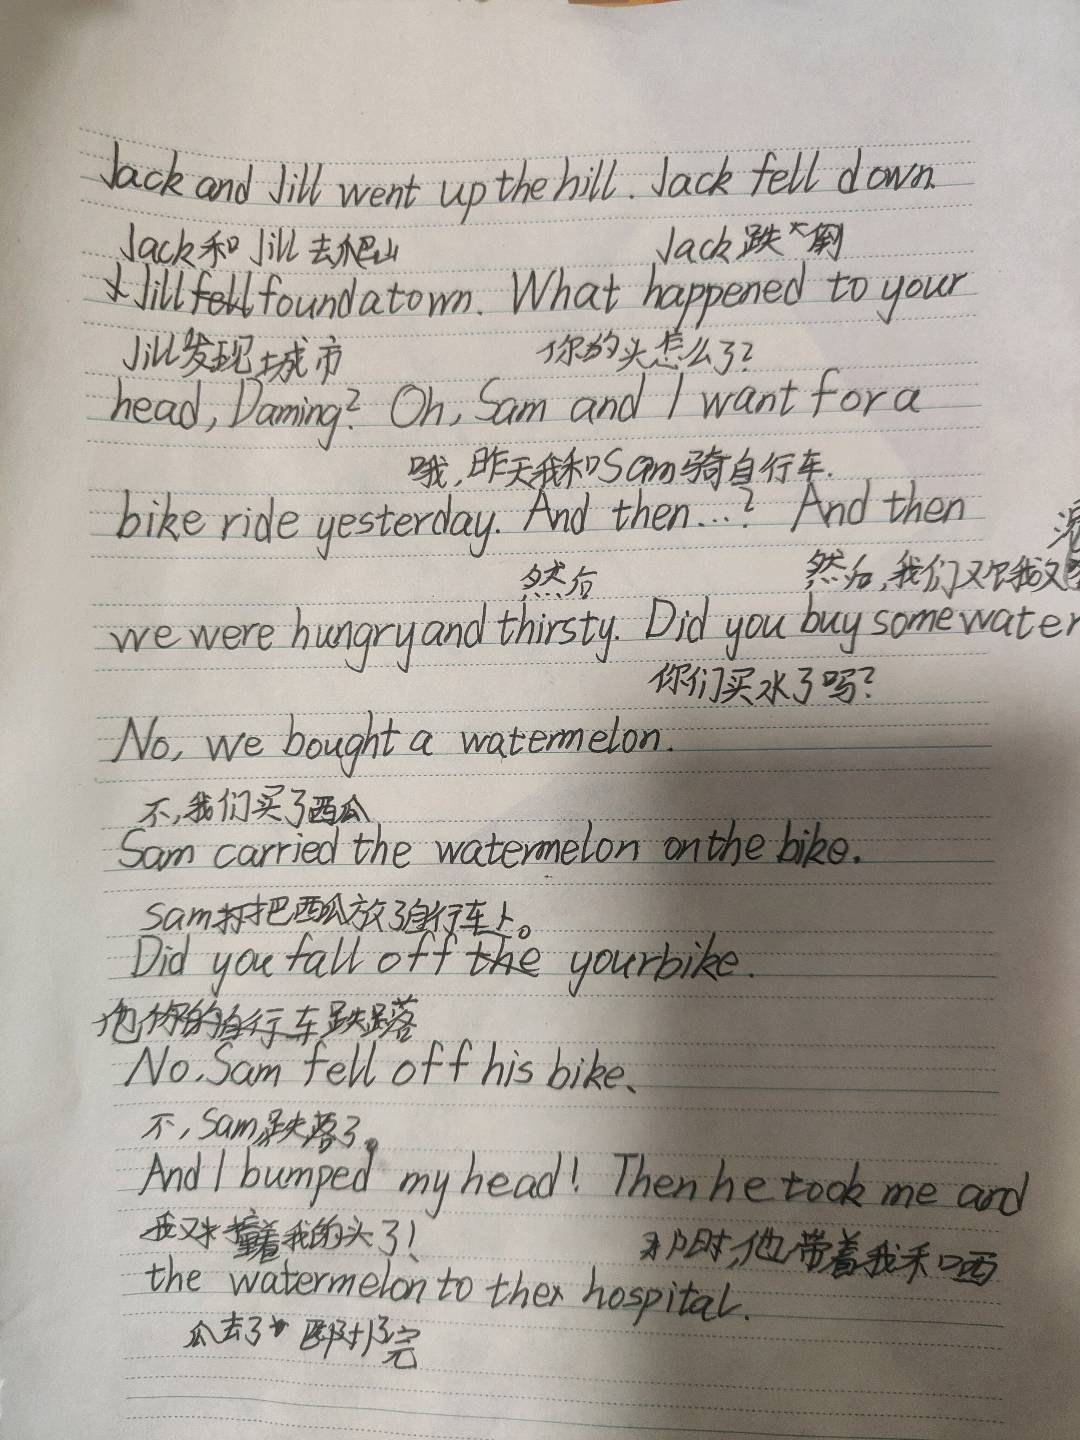 Jack and Jill went up the hill. Jack fell down.
Jack和Jill去爬山 Jack跌倒
Jill fell found a town. What happened to your
Jill发现城市 你的头怎么了?
head, Daming? Oh, Sam and I want for a
哦,昨天我和Sam骑自行车.
bike ride yesterday. And then...? And then
然后 然后,我们又饿我又
we were hungry and thirsty. Did you buy some water
你们买水了吗?
No, we bought a watermelon.
不,我们买了西瓜
Sam carried the watermelon on the bike.
Sam把西瓜放了自行车上。
Did you fall off the your bike.
他你的自行车跌落
No, Sam fell off his bike.
不, Sam跌落了。
And I bumped my head! Then he took me and
我又撞着我的头了! 那时,他带着我和西
the watermelon to the hospital.
瓜去了 医院